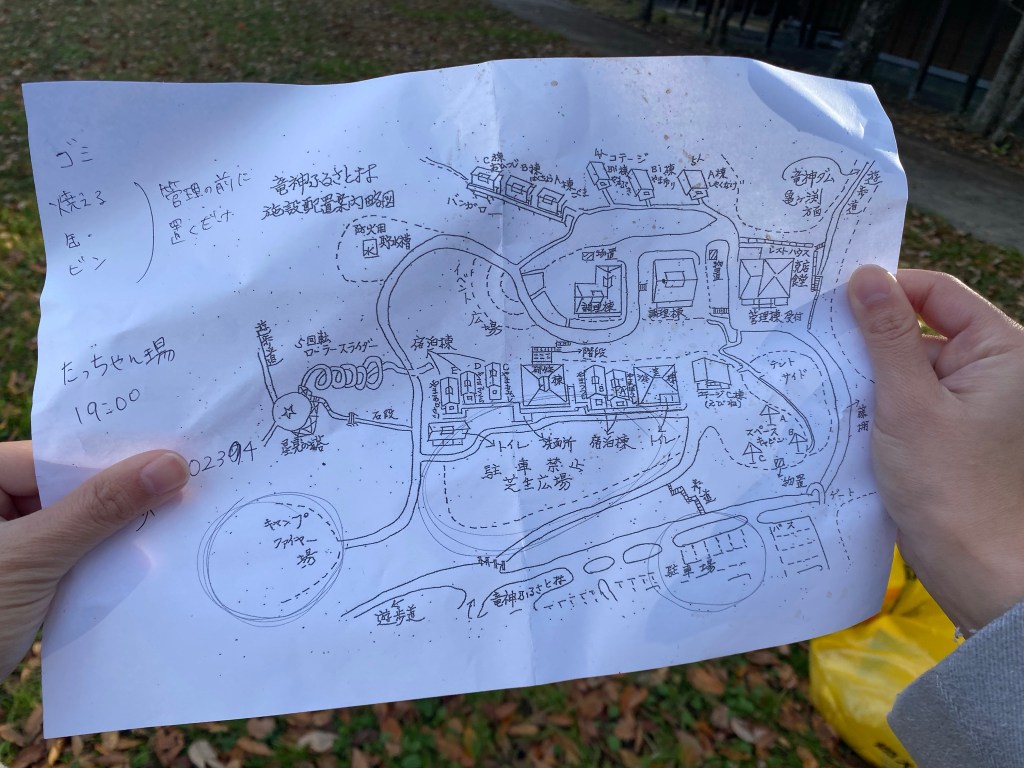 ゴミ
焼える
缶・
ビン
管理の前に
置くだけ
たっちゃん場
19:00
02394
竜神ふるさと村
施設配置案内略図
防火用
水
貯水槽
C棟
B棟
A棟
バンガロー
コテージ
B1棟
A棟
竜神ダム
亀ヶ渕
方面
遊歩道
レストハウス
売店
食堂
管理棟
受付
物置
調理棟
調理棟
物置
イベント
広場
5回転
ローラースライダー
遊歩道
石段
宿泊棟
階段
研修
コテージC棟
(えびね)
テント
サイド
スペース
キャビン
A
B
C
物置
トイレ
洗面所
宿泊棟
トイレ
駐車禁止
芝生広場
キャンプ
ファイヤー
場
歩道
ゲート
バス
駐車場
竜神ふるさと村
遊歩道